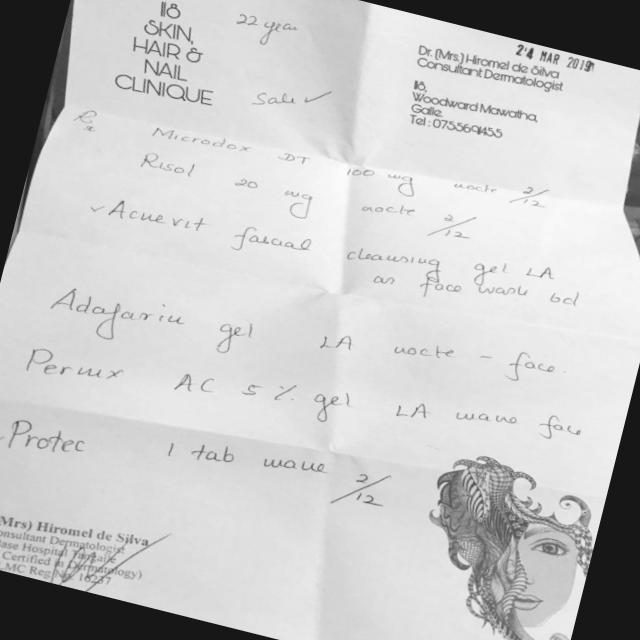 118
SKIN,
HAIR &
NAIL
CLINIQUE
22 year
24 MAR 2019
Dr. (Mrs.) Hiromel de Silva
Consultant Dermatologist
118,
Woodward Mawatha,
Galle.
Tel : 0755694455
Rx
Microdox DT 100 mg nocte 2/12
Risol 20 mg nocte 2/12
✓ Acnevit facial cleansing gel LA
as face wash bd
Adafarin gel LA nocte - face.
Pernex AC 5 % gel LA mane face
Protec 1 tab mane 2/12
(Mrs) Hiromel de Silva
Consultant Dermatologist